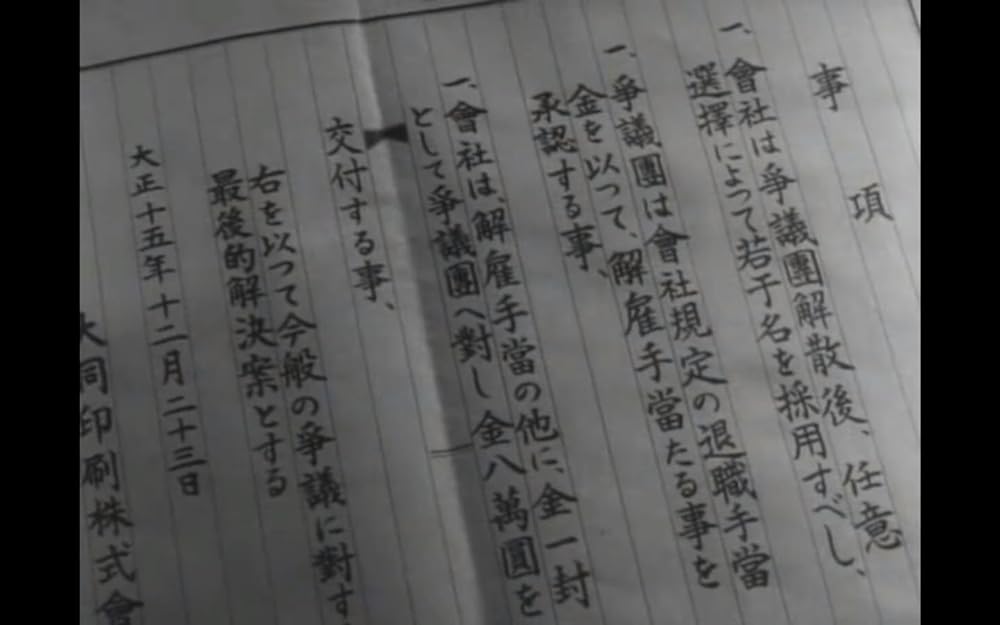 事項
一、會社は爭議團解散後、任意
選擇によって若干名を採用すべし、
一、爭議團は會社規定の退職手當
金を以つて、解雇手當たる事を
承認する事、
一、會社は、解雇手當の他に、金一封
として爭議團へ對し金八萬圓を
交付する事、
右を以つて今般の爭議に對す
最後的解決案とする
大正十五年十二月二十三日
大同印刷株式會